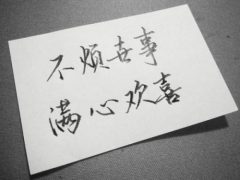 不烦喜事
满心欢喜